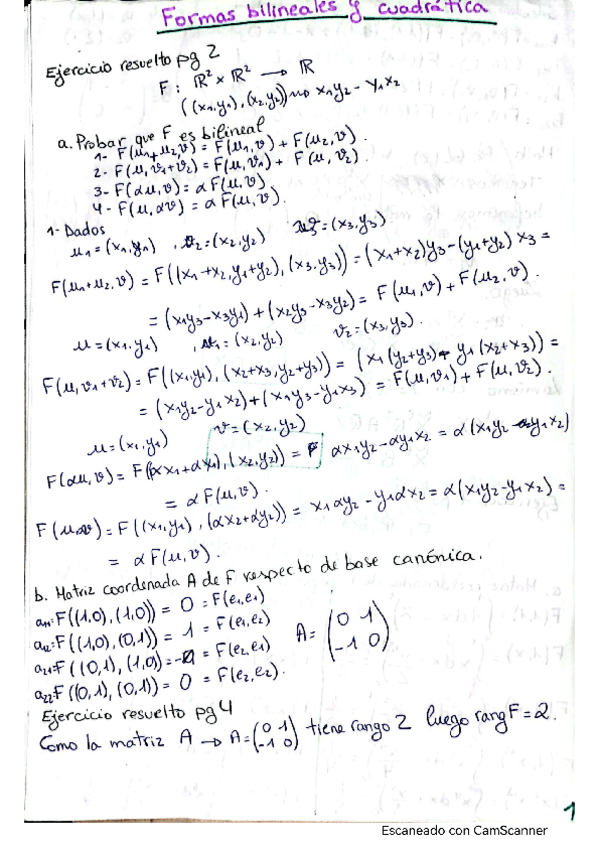 Formas bilineales y cuadrática
Ejercicio resuelto pg 2
F: ℝ² × ℝ² → ℝ
((x₁,y₁),(x₂,y₂)) ⇝ x₁y₂ - y₁x₂
a. Probar que F es bilineal
1- F(u₁+u₂,v) = F(u₁,v) + F(u₂,v).
2- F(u,v₁+v₂) = F(u,v₁) + F(u,v₂).
3- F(αu,v) = αF(u,v)
4- F(u,αv) = αF(u,v).
1- Dados
u₁=(x₁,y₁) , u₂=(x₂,y₂) v=(x₃,y₃)
F(u₁+u₂,v) = F((x₁+x₂,y₁+y₂),(x₃,y₃)) = (x₁+x₂)y₃-(y₁+y₂)x₃ =
= (x₁y₃-x₃y₁)+(x₂y₃-x₃y₂) = F(u₁,v)+F(u₂,v).
u=(x₁,y₁) , v₁=(x₂,y₂) v₂=(x₃,y₃).
F(u,v₁+v₂) = F((x₁,y₁),(x₂+x₃,y₂+y₃)) = (x₁(y₂+y₃)- y₁(x₂+x₃)) =
= (x₁y₂-y₁x₂)+(x₁y₃-y₁x₃) = F(u,v₁)+F(u,v₂).
u=(x₁,y₁) v=(x₂,y₂)
F(αu,v) = F((αx₁+αy₁),(x₂,y₂)) = αx₁y₂-αy₁x₂ = α(x₁y₂-y₁x₂)
= αF(u,v).
F(u,αv) = F((x₁,y₁),(αx₂+αy₂)) = x₁αy₂-y₁αx₂ = α(x₁y₂-y₁x₂) =
= αF(u,v).
b. Matriz coordenada A de F respecto de base canónica.
a₁₁=F((1,0),(1,0)) = 0 = F(e₁,e₁)
a₁₂=F((1,0),(0,1)) = 1 = F(e₁,e₂)
a₂₁=F((0,1),(1,0)) = -1 = F(e₂,e₁) A = (0 1 / -1 0)
a₂₂=F((0,1),(0,1)) = 0 = F(e₂,e₂).
Ejercicio resuelto pg 4
Como la matriz A → A = (0 1 / -1 0) tiene rango 2 luego rang F = 2.
1
Escaneado con CamScanner